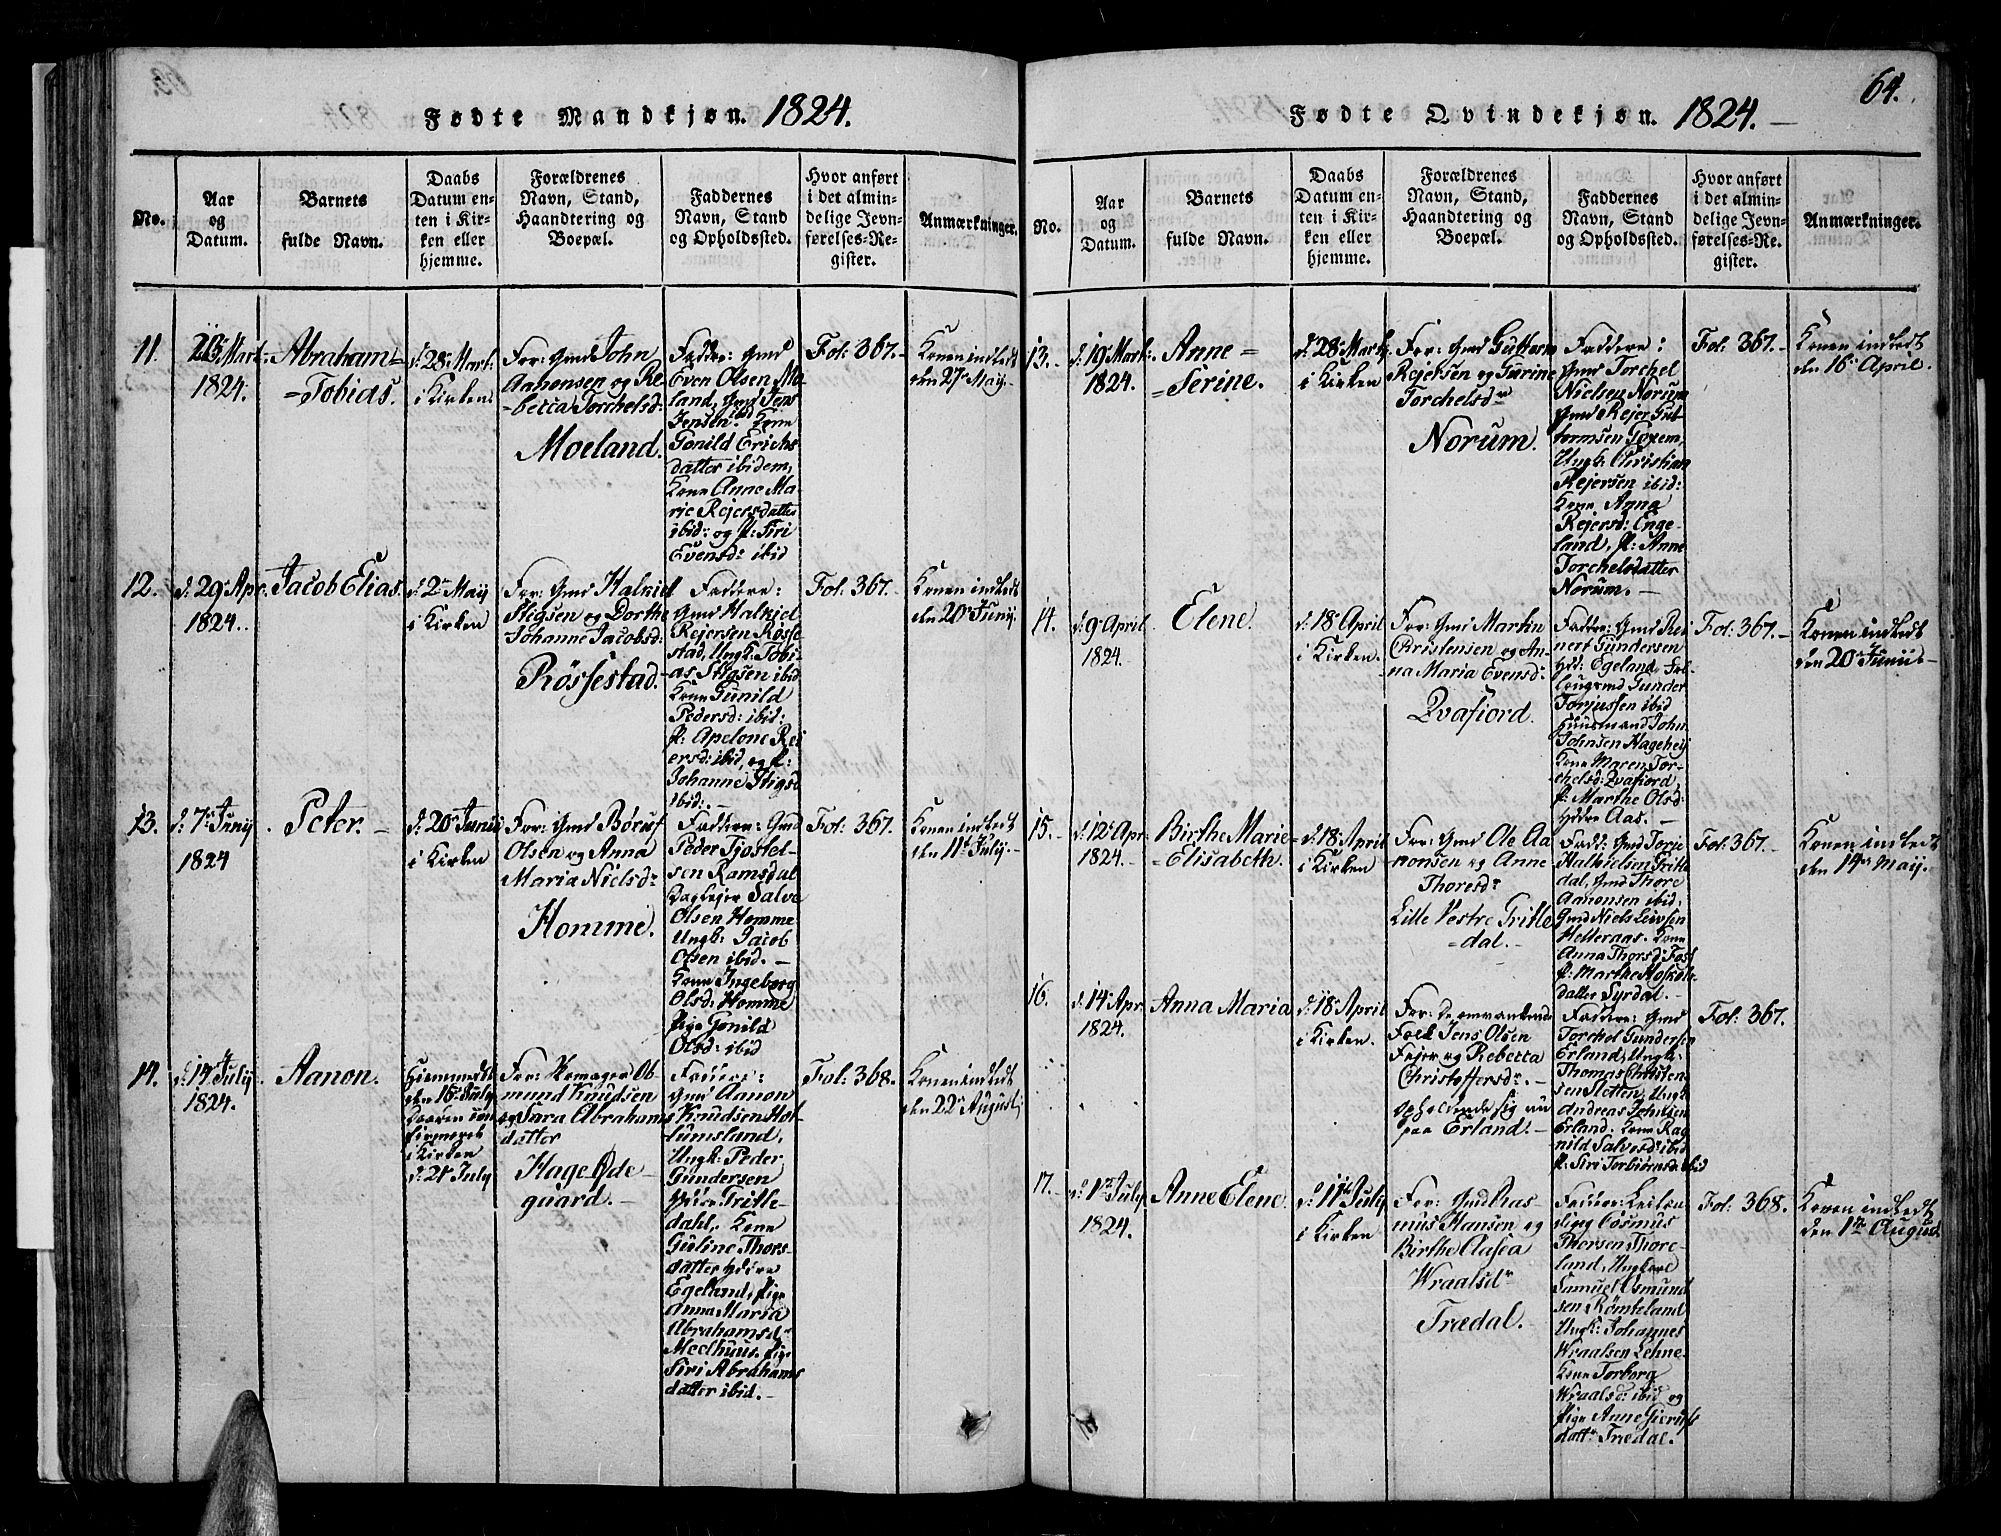 Fødte Mandkjøn. 1824.
No.
Aar
og
Datum.
Barnets
fulde Navn.
Daabs
Datum en-
ten i Kir-
ken eller
hjemme.
Forældrenes
Navn, Stand,
Haandtering og
Boepæl.
Faddernes
Navn, Stand
og Opholdssted.
Hvor anført
i det almin-
delige Jevn-
førelses-Re-
gister.
Anmærkninger.
11.
Mart:
1824.
Abraham=
=Tobias.
d: 28 Mart:
i Kirken
For: Gmd John
Aanonsen og Re
=becca Torchelsd:
Moeland.
Faddere: Gmd
Even Olsen Mo
land, Gmd Jens
Jensen ibd: Kone
Gonild Erichs
datter ibidem,
Kone Anne Ma-
rie Rejersdatter
ibid: og P: Siri
Evensdr ibid
Fol: 367.-
Konen indledt
den 27 Maij.
12.
d: 29 Apr.
1824.
Jacob Elias.
d: 2 Maij
i Kirken
For: Gmd Halkiel
Stigsen og Dorthe
Johanne Jacobsd:
Røssestad.
Faddere:
Gmd Halkiel
Rejersen Røsse
stad, Ungk: Tobi-
as Stigsen ibid
Kone Gunild
Pedersd: ibid:
P: Apelone Rei
ersd: ibid, og P:
Johanne Stigsd
ibid:-
Fol: 367.
Konen indledt
den 20 Junij.
13.
d: 7 Junij
1824
Peter.-
d: 20 Junii
i Kirken
For: Gmd Børuf
Olsen og Anna
Maria Nielsdr
Homme.
Faddere: Gmd
Peder Tjostel-
sen Ramsdal
Dagleier Salve
Olsen Homme
Ungk: Jacob
Olsen ibid.-
Kone Ingeborg
Olsd: Homme
Pige Gonild
Olsd: ibid
Fol: 367.
Konen indledt
den 11 Julij.-
14.
d: 14 Julij
1824.
Aanon.
Hiemmedt
den 15 Julij
Daaben con
firmeret
i Kirken
d: 21 July
For: Skomager Ob
mund Knudsen
og Sara Abrahams
datter
Hage Øde-
guard.-
Faddere:
Gmd Aanon
Knudsen Hol
lumsland,
Ungk: Peder
Gundersen
Yddre Tritle-
dahl, Kone
Guline Thors-
datter Yddre
Egeland, Pige
Anna Maria
Abrahamsdr
Meelhuus. Pige
Siri Abrahams
datter ibid.-
Fol: 368.
Konen indledt
den 22 August
64.
Fødte Qvindekjøn. 1824.-
No.
Aar
og
Datum.
Barnets
fulde Navn.
Daabs
Datum en-
ten i Kir-
ken eller
hjemme.
Forældrenes
Navn, Stand,
Haandtering og
Boepæl.
Faddernes
Navn, Stand
og Opholdssted.
Hvor anført
i det almin-
delige Jevn-
førelses-Re-
gister.
Anmærkninger.
13.-
d: 19 Mart:
1824.
Anne=
=Serine.
d: 28 Mart:
i Kirken
For: Gmd Guttorm
Rejersen og Gurine
Torchelsdr
Norum.
Faddere:
Gmd Torchel
Nielsen Norum
Gmd Rejer Gut
tormsen
Ungk: Christian
Rejersen ibid:
Kone Anna
Rejersd: Enge-
land, P: Anne
Torchelsdatter
Norum.-
Fol: 367.-
Konen indledt
den 16 April.
14.
d: 9 April
1824.
Elene.
d: 18 April
i Kirken.
For: Gmd Martin
Christensen og An-
na Maria Evensd:
Qvafiord.
Faddere: Gmd Rei
nert Gundersen
Ydd: Egeland, Føl-
laugsmd Gunder
Torjussen ibid
Huusmand John
Johnsen Hageheij
Kone Maren Tor-
chelsd: Qvafiord,
P: Marthe Olsd:
Yddre Aas.-
Fol: 367.-
Konen indledt
den 20 Junii-
15.
d: 12 Apr.
1824.-
Birthe Marie=
=Elisabeth.
d: 18 April
i Kirken
For: Gmd Ole Aa
nonsen og Anne
Thoresdr
Lille Vestre Tritle
=dal.-
Fadd: Gmd Torje
Halkielsen Tritle
dal, Gmd Thore
Aanonsen ibid,
Gmd Niels Leivsen
Helleraas. Kone
Anna Thorsd: Foss
P: Marthe
datter Syrdal.-
Fol: 367.-
Konen indledt
den 14 Maij.
16.
d: 14 Apr.
1824.
Anna Maria
d: 18 April
i Kirken.
For: De omvankende
Folk Jens Olsen
Fejer og Rebetta
Christoffersdr.-
opholdende sig nu
paa Erland.-
Faddere: Gmd
Torchel Gundersen
Erland, Ungk:
Thomas Christen-
sen Sletten, Ungk:
Andreas Jensen
Erland. Kone Rag
nild Salvesd: ibid
P: Siri Torbiørnsd: ibid
Fol: 367.
17.-
d: 1 July
1824.
Anne Elene.
d: 11 July
i Kirken
For: Gmd Ras
mus Hansen og
Birthe Aasea
Wraalsdr
Trædal.-
Faddere:
Thorsen Thore-
land, Ungkarl
Samuel Osmund
sen Rønteland
Ungk: Johannes
Wraalsen Lehne
Kone Torborg
Wraalsd: ibid og
Pige Anne
dattr Trædal.-
Fol: 368.
Konen indledt
den 1 August